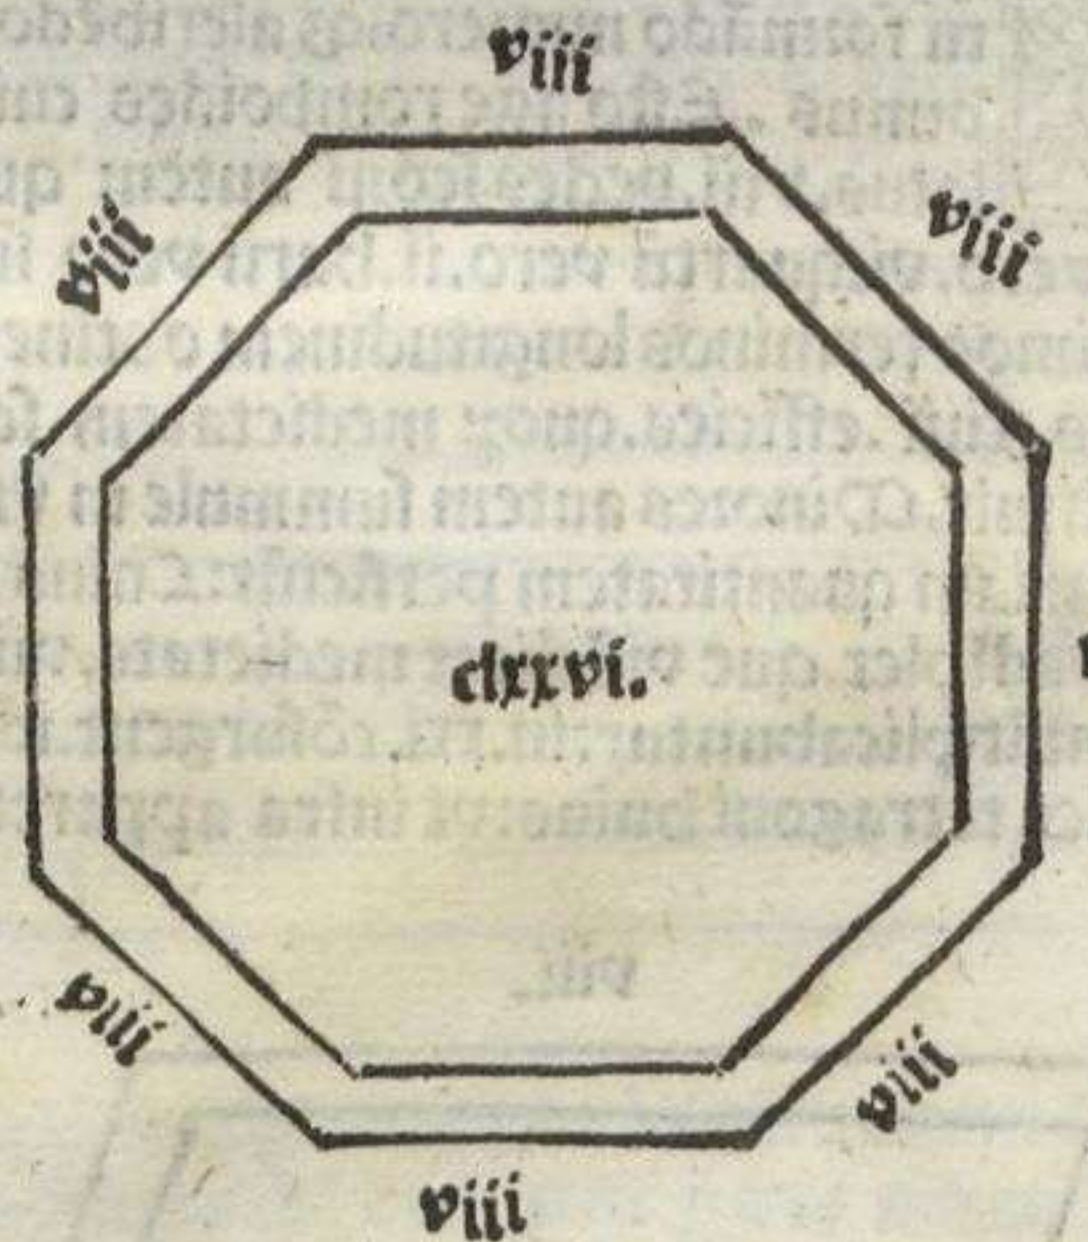 viii
viii
viii
clxxvi.
viii
viii
viii